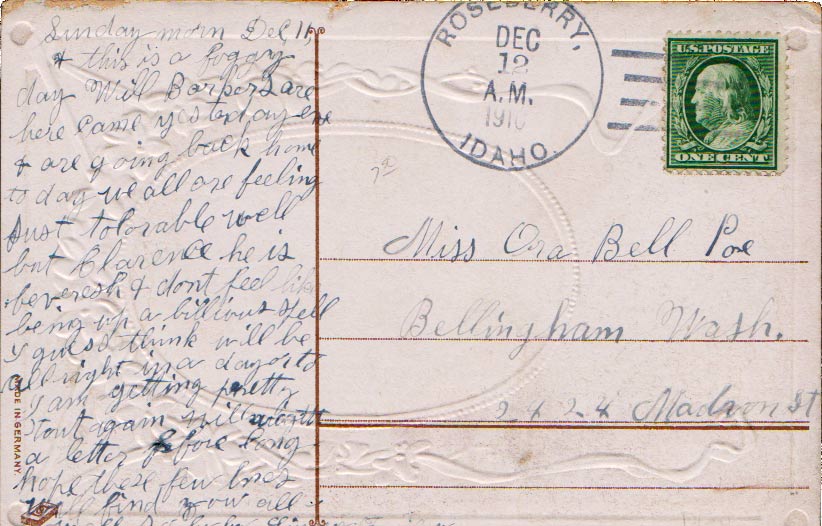 Sunday morn Dec 11,
& this is a foggy
day Will Borpers are
here came yesterday eve
& are going back home
to day we all are feeling
Just tolorable well
but Clarence he is
feveresh & dont feel like
being up a billious spell
I guess think will be
all right in a day or to
I am getting pretty
stout again will write
a letter before long
hope these few lines
will find you all
MADE IN GERMANY
ROSEBERRY,
DEC
12
A.M.
1910
IDAHO.
U.S. POSTAGE
ONE CENT
Miss Ora Bell Poe
Bellingham Wash.
2424 Madron St